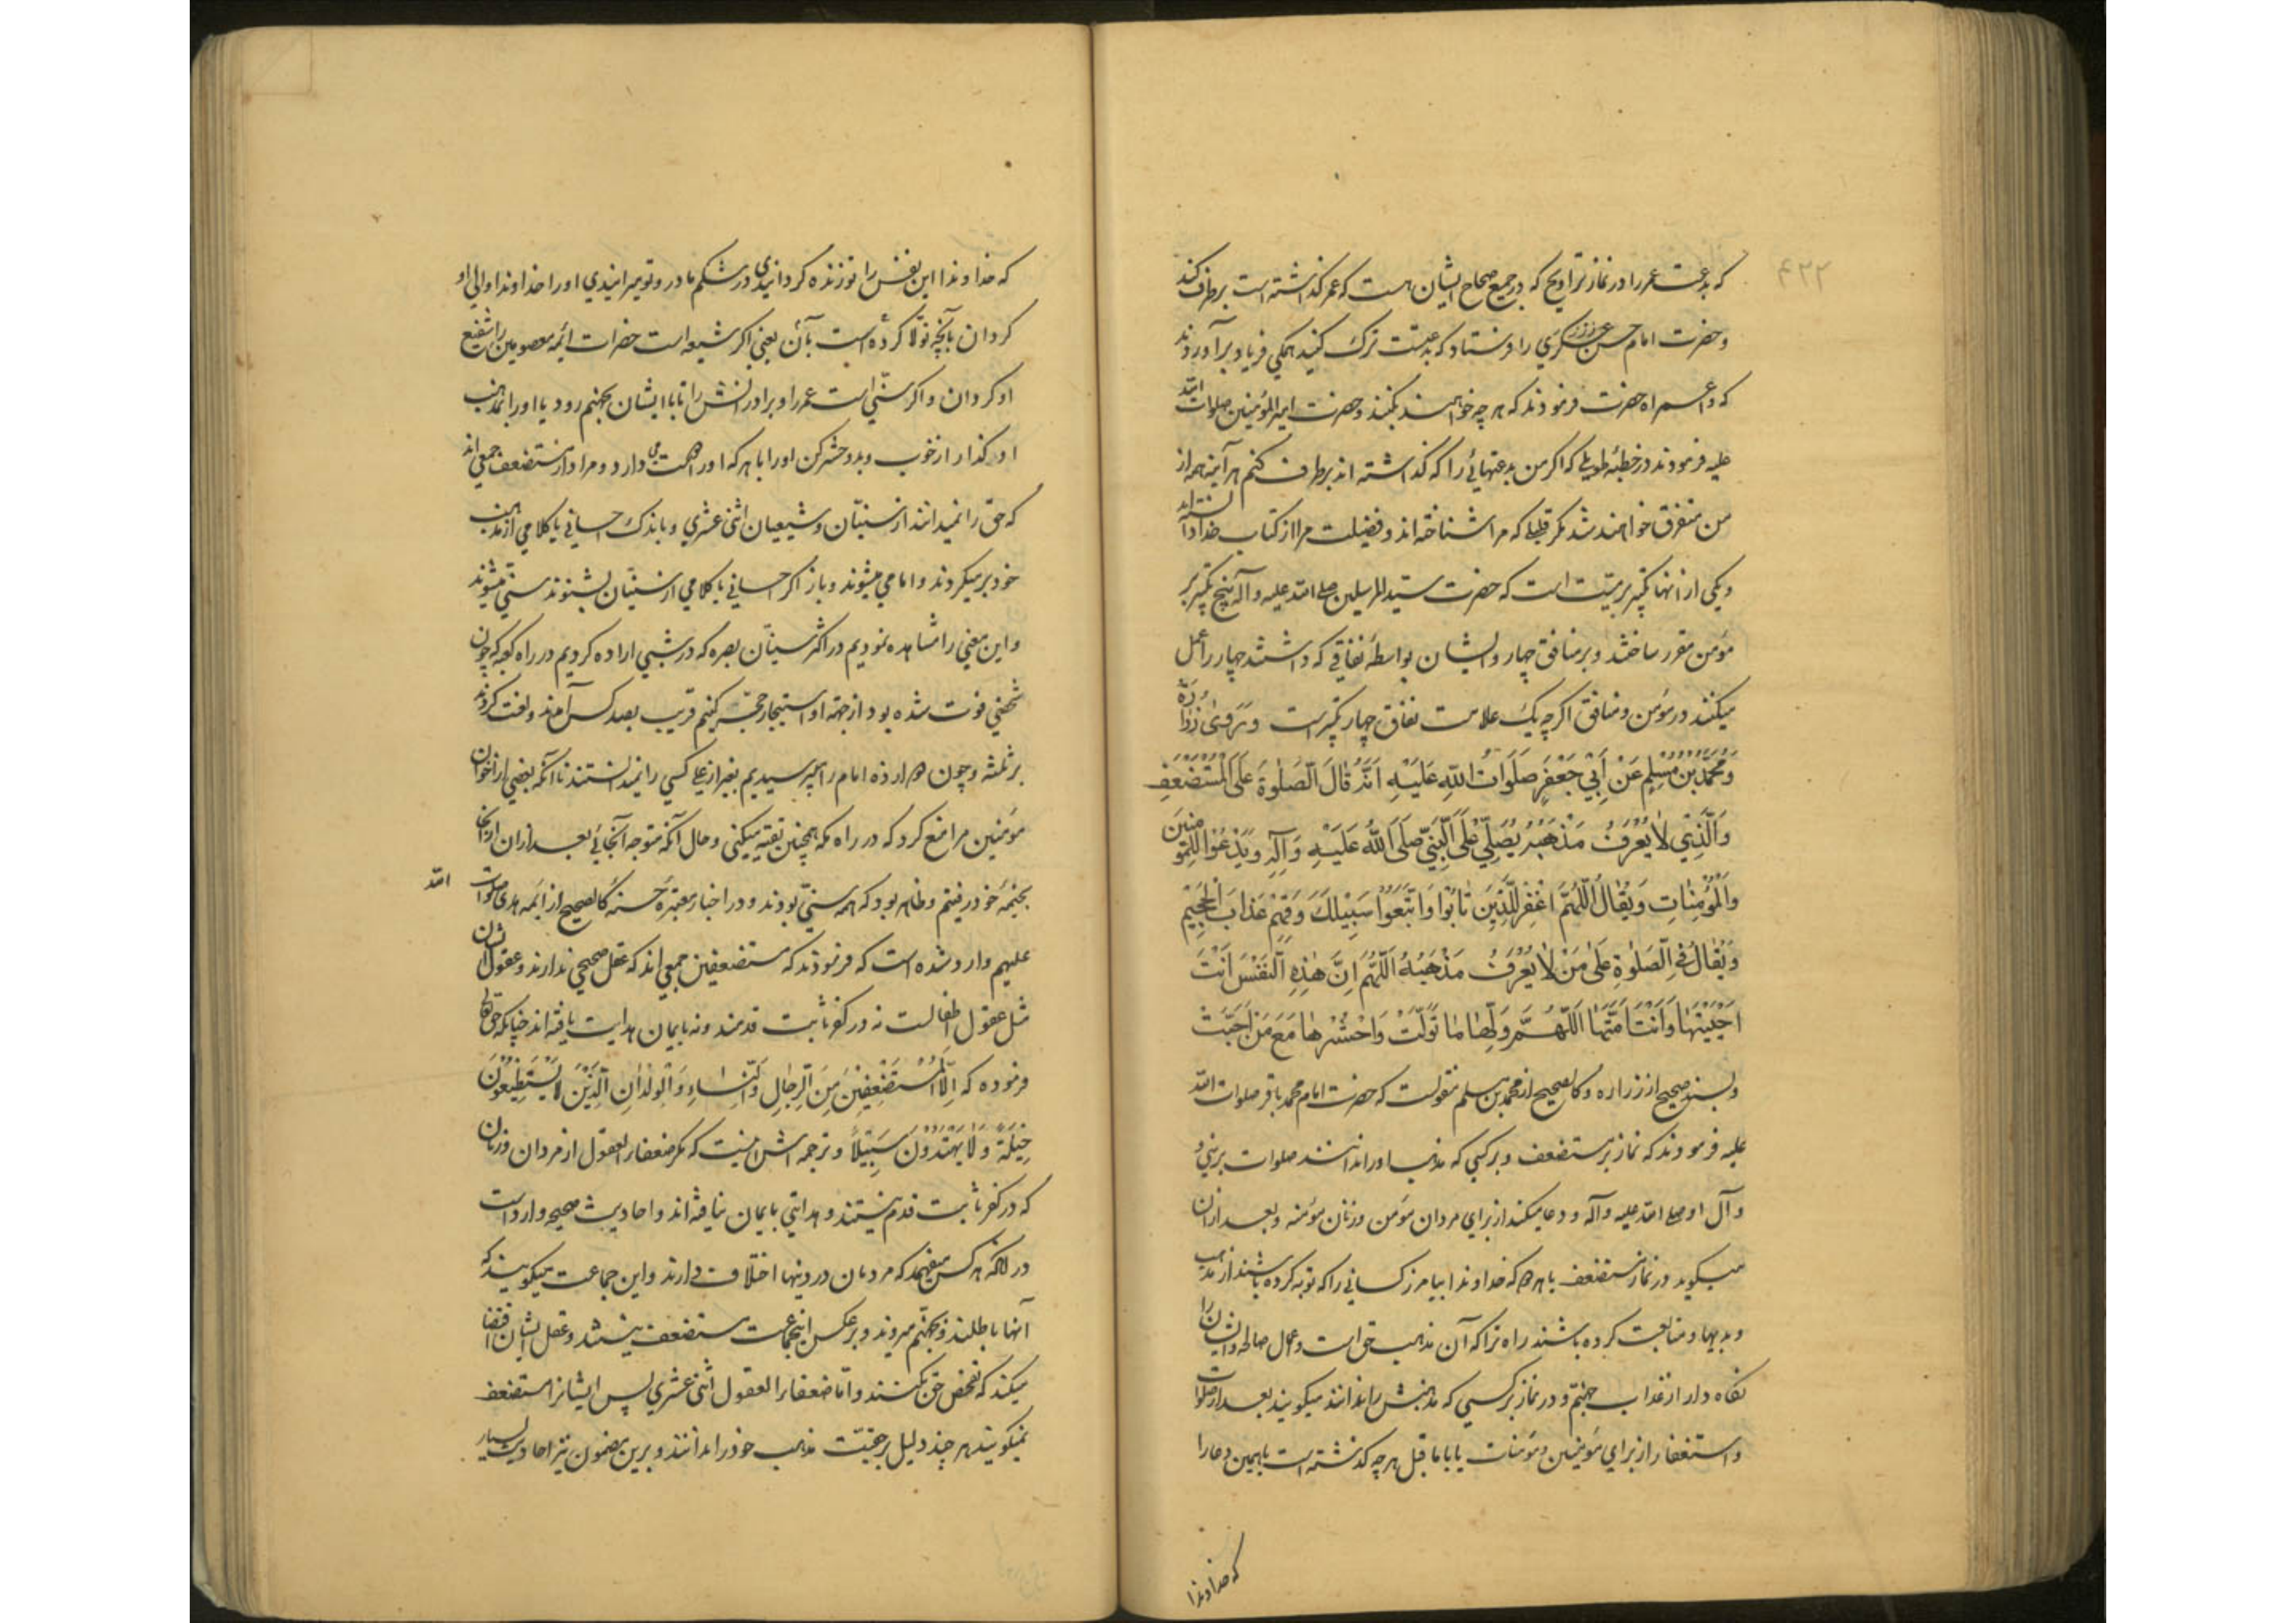 ۴۲۲
که بدعت عمر را در نماز تراویح که در جمیع صحاح ایشان هست که عمر گذاشته است برطرف کند
و حضرت امام حسن را فرستاد که بدعت ترک کنید همگی فریاد برآوردند
که واعمراه حضرت فرمودند که هر چه خواهند بکنند و حضرت امیر المؤمنین صلوات الله
علیه فرمودند در خطبهٔ طویلی که اگر من بدعتهائی را که گذاشته اند برطرف کنم هر آینه همه از
من متفرق خواهند شد مگر قلیلی که مرا شناخته اند و فضیلت مرا از کتاب خدا دانسته اند
و یکی از انها تکبیر میّت است که حضرت سیّد المرسلین صلی الله علیه و آله پنج تکبیر بر
مؤمن مقرر ساختند و بر منافق چهار و ایشان بواسطهٔ نفاقی که داشتند چهار را عمل
میکنند در مؤمن و منافق اگر چه یک علامت نفاق چهار تکبیر است وَرَوی زُرَارَةُ
وَمُحَمَّدُ بْنُ مُسْلِمٍ عَنْ اَبِیْ جَعْفَرٍ صَلَوَاتُ اللّٰهِ عَلَیْهِ اَنَّهُ قَالَ الصَّلٰوةُ عَلَی الْمُسْتَضْعَفِ
وَالَّذِیْ لاٰ یُعْرَفُ مَذْهَبُهُ یُصَلّیٰ عَلَی النَّبِیِّ صَلَّی اللّٰهُ عَلَیْهِ وَآلِهِ وَیُدْعُوْا لِلْمُؤمِنِینَ
وَالْمُؤْمِنٰاتِ وَیُقٰالُ اَللّٰهُمَّ اغْفِرْ لِلَّذِیْنَ تٰابُوْا وَاتَّبَعُوْا سَبِیْلَكَ وَقِهِمْ عَذٰابَ الْجَحِیْمِ
وَیُقٰالُ فِی الصَّلٰوةِ عَلیٰ مَنْ لاٰ یُعْرَفُ مَذْهَبُهُ اَللّٰهُمَّ اِنَّ هٰذِهِ النَّفْسَ اَنْتَ
اَحْیَیْتَهٰا وَاَنْتَ اَمَتَّهٰا اَللّٰهُمَّ وَلِّهٰا مٰا تَوَلَّتْ وَاحْشُرْهٰا مَعَ مَنْ اَحَبَّتْ
و بسند صحیح از زراره و کالصحیح از محمد بن مسلم منقولست که حضرت امام محمد باقر صلوات الله
علیه فرمودند که نماز بر مستضعف و بر کسی که مذهب او را ندانند صلوات بر نبی و
و آل او صلی الله علیه و آله و دعا میکند از برای مردان مؤمن و زنان مؤمنه و بعد ازان
میگوید در نماز مستضعف یا هر دو که خداوندا بیامرز کسانی را که توبه کرده باشند از مذهب
و بدیها و متابعت کرده باشند راه ترا که آن مذهب حق است و عمل صالح و ایشان را
نگاه دار از عذاب جهنّم و در نماز بر کسی که مذهبش را ندانند میگویند بعد از صلوات
و استغفار از برای مؤمنین و مؤمنات یا با ما قبل هر چه گذشته است با همین دعا را
که خداوندا
که خداوندا این نفس را تو زنده گردانیدی در شکم مادر و تو میرانیدی او را خداوندا والی او
گردان بآنچه تولّا کرده است بآن یعنی اگر شیعه است حضرات ائمه معصومین را شفیع
او گردان و اگر سنّی است عمر را و برادرانش را تا با ایشان بجهنم رود یا او را بمذهب
او گذار از خوب و بد و حشر کن او را با هر که او را دوست می دارد و مراد از مستضعف جمعی اند
که حق را نمیدانند از سنیّان و شیعیان اثنی عشری و باندک احسانی یا کلامی از مذهب
خود برمیگردند و امامی میشوند و باز اگر احسانی یا کلامی از سنیّان بشنوند سنّی میشوند
و این معنی را مشاهده نمودیم در اکثر سنیّان بصره که در شبی اراده کردیم در راه کعبه که چون
شخصی فوت شده بود از جهة او استیجار حجّه کنیم قریب بصد کس آمدند و لعنت کردند
بر ثلثه و چون دوازده امام را پرسیدیم بغیر از علی کسی را نمیدانستند تا آنکه بعضی از اخوان
مؤمنین مرا منع کرد که در راه مکه همچنین تقیّه میکنی و حال آنکه متوجه آنجائی بعد ازان از آنجا
بخیمهٔ خود رفتم و ظاهر بود که همه سنّی بودند و در اخبار معتبرهٔ حسنه کالصحیح از ائمه هدی صلوات الله
علیهم وارد شده است که فرمودند که مستضعفین جمعی اند که عقل صحیحی ندارند و عقول ایشان
مثل عقول اطفالست نه در کفر ثابت قدمند و نه بایمان هدایت یافته اند چنانکه حق تعالی
فرموده که اِلَّا الْمُسْتَضْعَفِیْنَ مِنَ الرِّجٰالِ وَالنِّسٰاءِ وَالْوِلْدٰانِ الَّذِیْنَ لاٰ یَسْتَطِیْعُوْنَ
حِیْلَةً وَلاٰ یَهْتَدُوْنَ سَبِیْلًا و ترجمه اش اینست که مگر ضعفاء العقول از مردان و زنان
که در کفر ثابت قدم نیستند و هدایتی بایمان نیافته اند و احادیث صحیحه وارد است
در آنکه هر کس میفهمد که مردمان در دینها اختلاف دارند و این جماعت میگویند که
آنها باطلند و بجهنّم میروند و برعکس اینجماعت مستضعف نیستند و عقل ایشان اقتضا
میکند که تفحّص حق بکنند و امّا ضعفاء العقول اثنی عشری پس ایشانرا مستضعف
نمیگویند هر چند دلیل بر حقیّت مذهب خود را ندانند و برین مضمون نیز احادیث بسیار